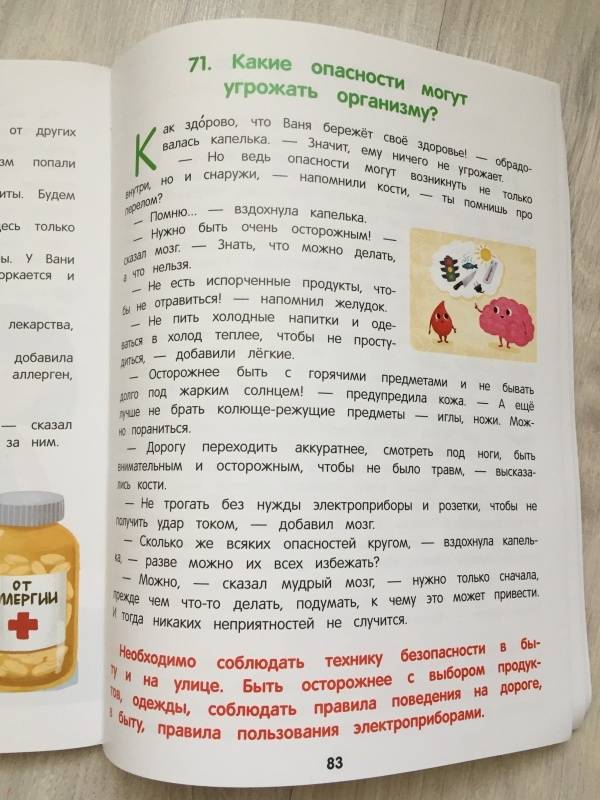 от других
зм попали
иты. Будем
десь только
ы. У Вани
оркается и
лекарства,
добавила
аллерген,
— сказал
за ним.
ОТ
АЛЛЕРГИИ
71. Какие опасности могут
угрожать организму?
Как здо́рово, что Ваня бережёт своё здоровье! — обрадо-
валась капелька. — Значит, ему ничего не угрожает.
— Но ведь опасности могут возникнуть не только
внутри, но и снаружи, — напомнили кости, — ты помнишь про
перелом?
— Помню... — вздохнула капелька.
— Нужно быть очень осторожным! —
сказал мозг. — Знать, что можно делать,
а что нельзя.
— Не есть испорченные продукты, что-
бы не отравиться! — напомнил желудок.
— Не пить холодные напитки и оде-
ваться в холод теплее, чтобы не просту-
диться, — добавили лёгкие.
— Осторожнее быть с горячими предметами и не бывать
долго под жарким солнцем! — предупредила кожа. — А ещё
лучше не брать колюще-режущие предметы — иглы, ножи. Мож-
но пораниться.
— Дорогу переходить аккуратнее, смотреть под ноги, быть
внимательным и осторожным, чтобы не было травм, — высказа-
лись кости.
— Не трогать без нужды электроприборы и розетки, чтобы не
получить удар током, — добавил мозг.
— Сколько же всяких опасностей кругом, — вздохнула капель-
ка, — разве можно их всех избежать?
— Можно, — сказал мудрый мозг, — нужно только сначала,
прежде чем что-то делать, подумать, к чему это может привести.
И тогда никаких неприятностей не случится.
Необходимо соблюдать технику безопасности в бы-
ту и на улице. Быть осторожнее с выбором продук-
тов, одежды, соблюдать правила поведения на дороге,
в быту, правила пользования электроприборами.
83